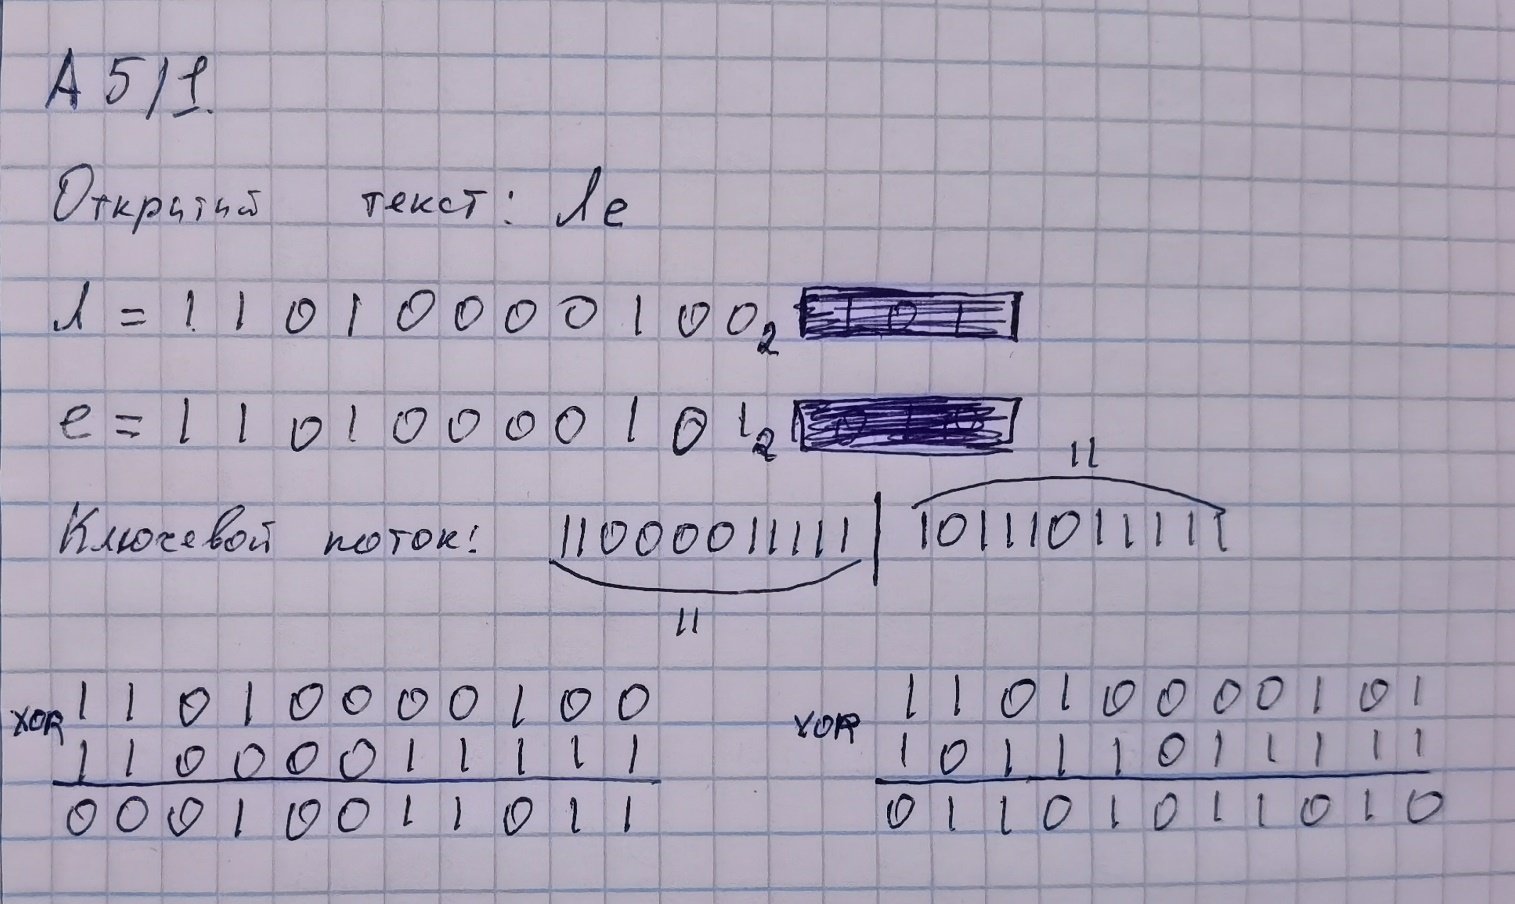 А5/1.
Открытый текст: Ле
Л = 11010000100₂
е = 11010000101₂
11
Ключевой поток: 11000011111 | 10111011111
11
XOR 11010000100 XOR 11010000101
11000011111 10111011111
00010011011 01101011010